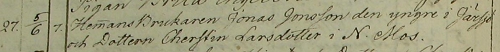 27. 5/6 7. Hemans Brukaren Jonas Jonsson den yngre i
och Dottern Cherstin Larsdotter i N. Mos.